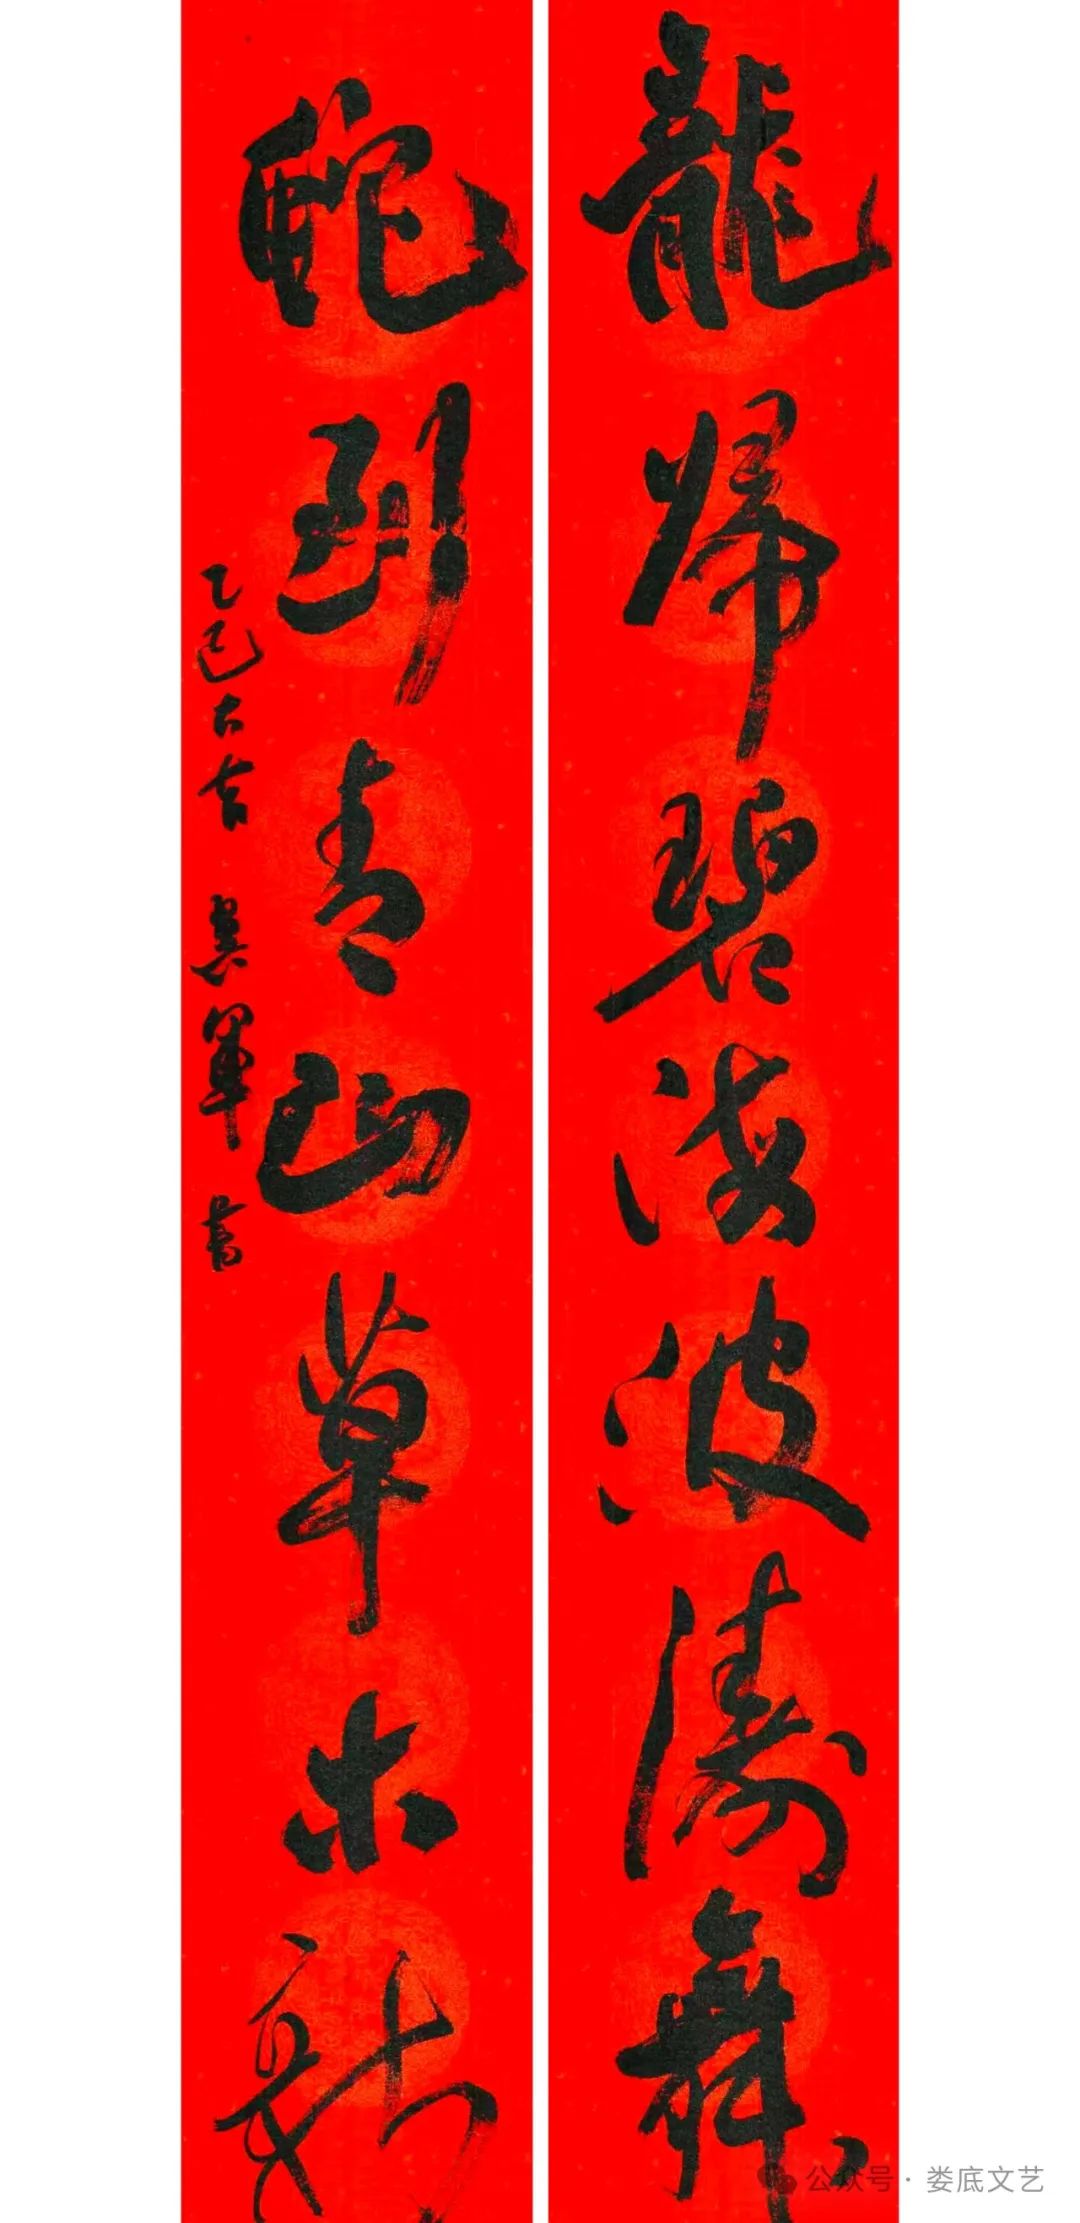 龍歸碧海波濤舞
蛇到青山草木新
乙巳大吉 吴軍書
公众号·娄底文艺